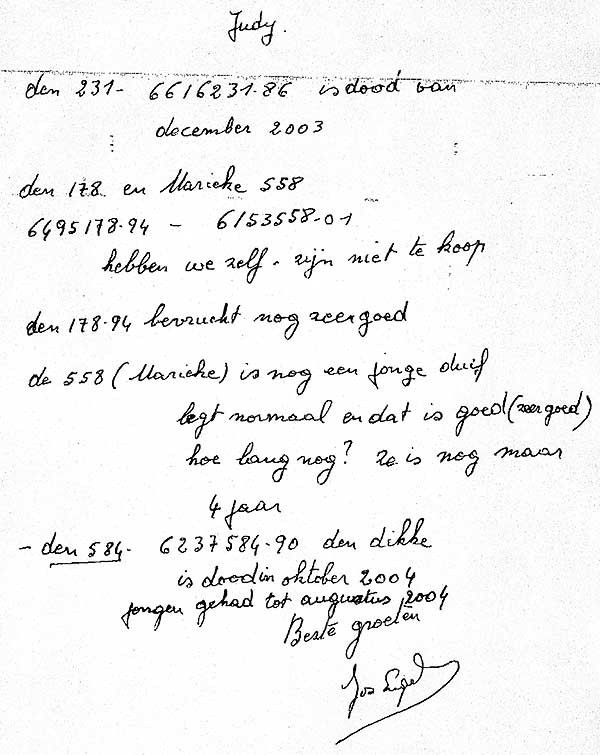 Judy.
den 231- 6616231.86 is dood van
december 2003
den 178. en Marieke 558
6495178.94 - 6153558-01
hebben we zelf. zijn niet te koop
den 178.94 bevrucht nog zeer goed
de 558 (Marieke) is nog een jonge duif
legt normaal en dat is goed (zeer goed)
hoe lang nog? ze is nog maar
4 jaar
- den 584- 6237584.90 den dikke
is dood in oktober 2004
jongen gehad tot augustus 2004
Beste groeten
Jos